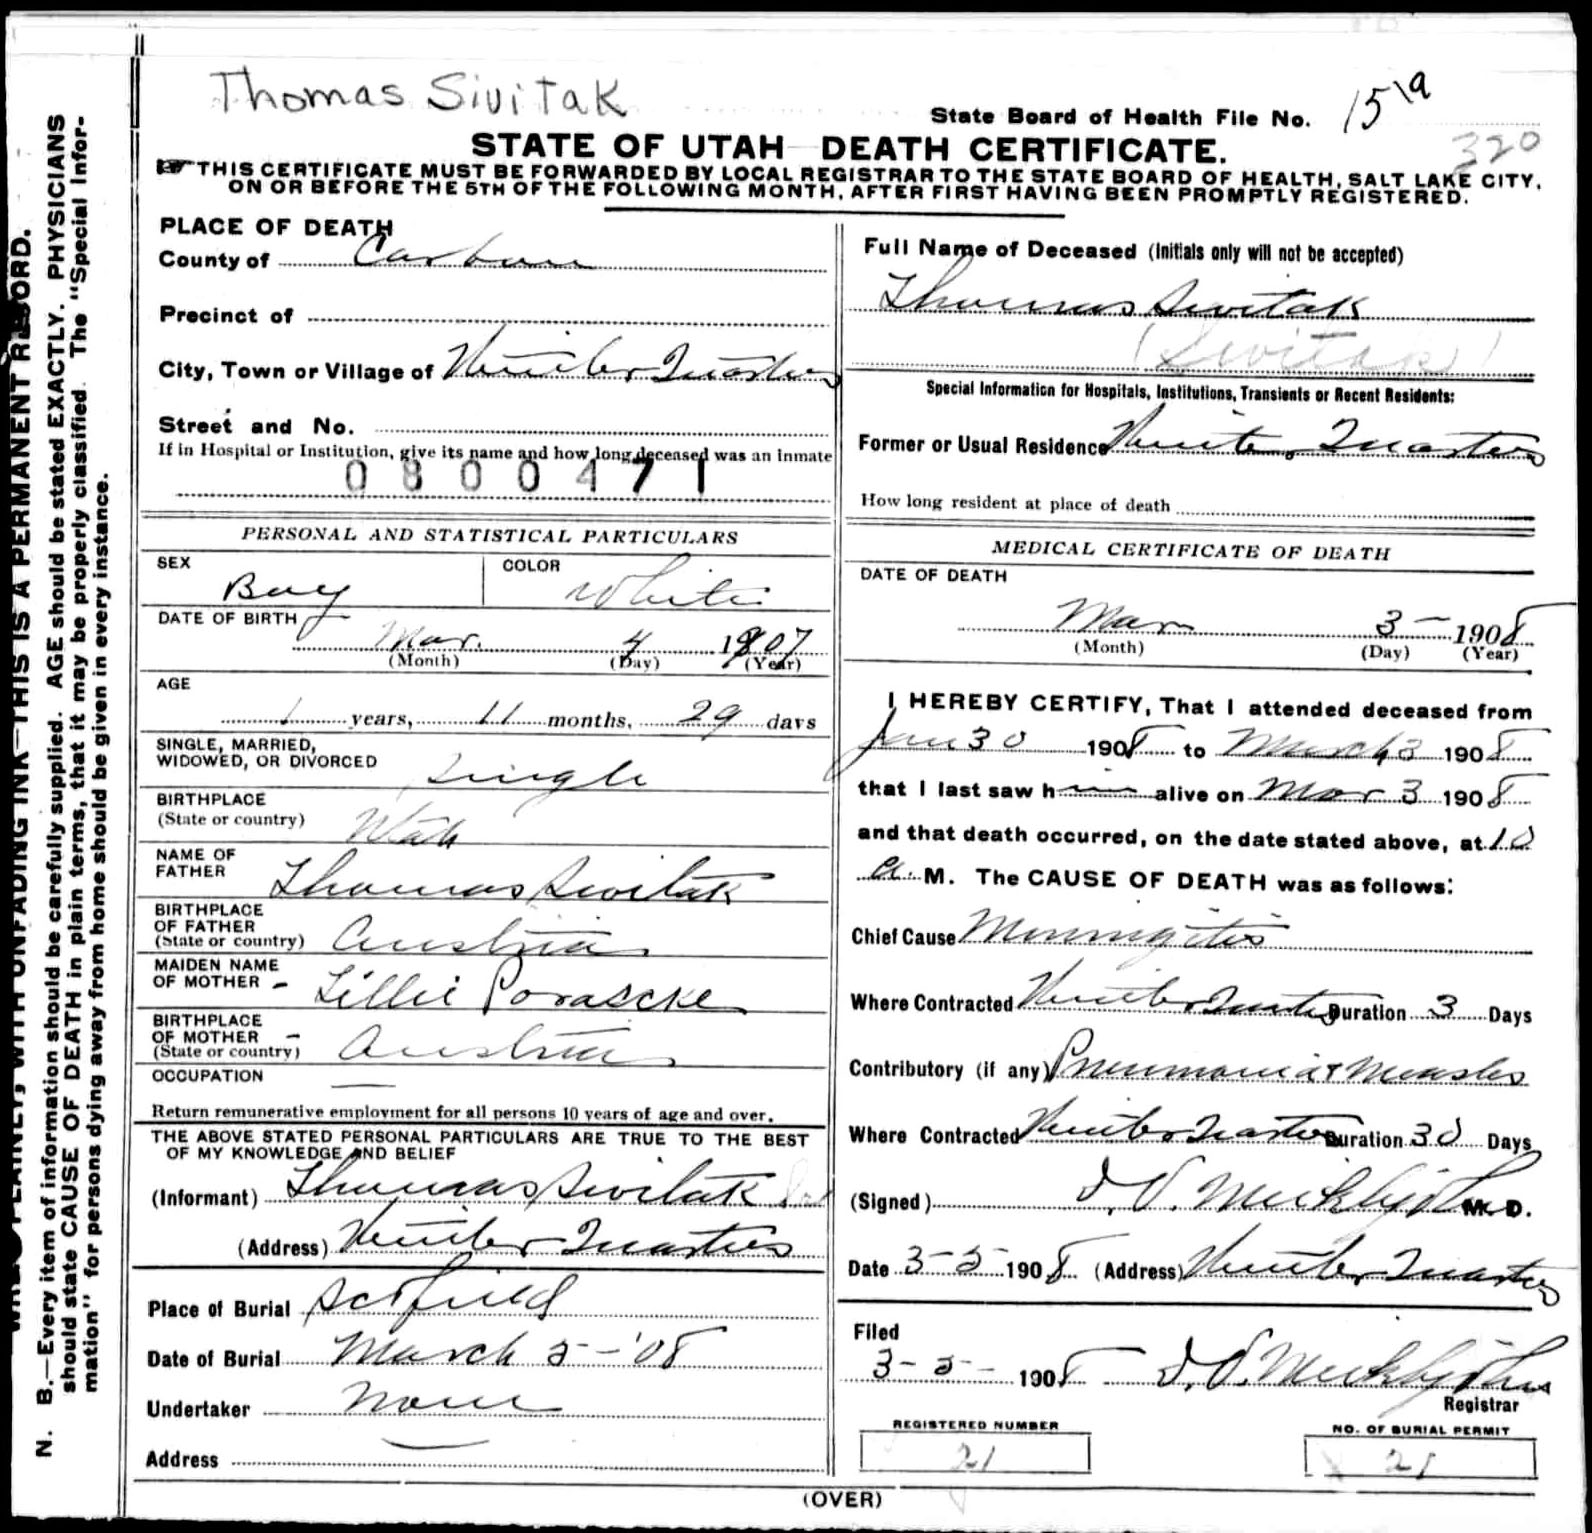 Thomas Sivitak
State Board of Health File No. 15 19
320
STATE OF UTAH DEATH CERTIFICATE.
THIS CERTIFICATE MUST BE FORWARDED BY LOCAL REGISTRAR TO THE STATE BOARD OF HEALTH, SALT LAKE CITY,
ON OR BEFORE THE 5TH OF THE FOLLOWING MONTH, AFTER FIRST HAVING BEEN PROMPTLY REGISTERED.
N. B.—Every item of information should be carefully supplied. AGE should be stated EXACTLY. PHYSICIANS
should state CAUSE OF DEATH in plain terms, that it may be properly classified. The "Special Infor-
mation" for persons dying away from home should be given in every instance.
PLAINLY, WITH UNFADING INK—THIS IS A PERMANENT RECORD.
PLACE OF DEATH
County of Carbon
Precinct of
City, Town or Village of Winter Quarters
Street and No.
If in Hospital or Institution, give its name and how long deceased was an inmate
0800471
PERSONAL AND STATISTICAL PARTICULARS
SEX Boy
COLOR White
DATE OF BIRTH
Mar. 4 1907
(Month) (Day) (Year)
AGE
1 years, 11 months, 29 days
SINGLE, MARRIED,
WIDOWED, OR DIVORCED Single
BIRTHPLACE
(State or country) Utah
NAME OF
FATHER Thomas Sivitak
BIRTHPLACE
OF FATHER
(State or country) Austria
MAIDEN NAME
OF MOTHER - Lillie Porascke
BIRTHPLACE
OF MOTHER -
(State or country) Austria
OCCUPATION —
Return remunerative employment for all persons 10 years of age and over.
THE ABOVE STATED PERSONAL PARTICULARS ARE TRUE TO THE BEST
OF MY KNOWLEDGE AND BELIEF
(Informant) Thomas Sivitak
(Address) Winter Quarters
Place of Burial Scofield
Date of Burial March 5-'08
Undertaker None
Address
Full Name of Deceased (Initials only will not be accepted)
Thomas Sivitak
(Sivitak)
Special Information for Hospitals, Institutions, Transients or Recent Residents:
Former or Usual Residence Winter Quarters
How long resident at place of death
MEDICAL CERTIFICATE OF DEATH
DATE OF DEATH
Mar 3 - 1908
(Month) (Day) (Year)
I HEREBY CERTIFY, That I attended deceased from
Jan 30 1908 to March 3 1908
that I last saw him alive on Mar 3 1908
and that death occurred, on the date stated above, at 10
a. M. The CAUSE OF DEATH was as follows:
Chief Cause Meningitis
Where Contracted Winter Quarters Duration 3 Days
Contributory (if any) Pneumonia & Measles
Where Contracted Winter Quarters Duration 30 Days
(Signed) M. D.
Date 3-5 1908 (Address) Winter Quarters
Filed
3-5- 1908
Registrar
REGISTERED NUMBER
21
NO. OF BURIAL PERMIT
21
(OVER)